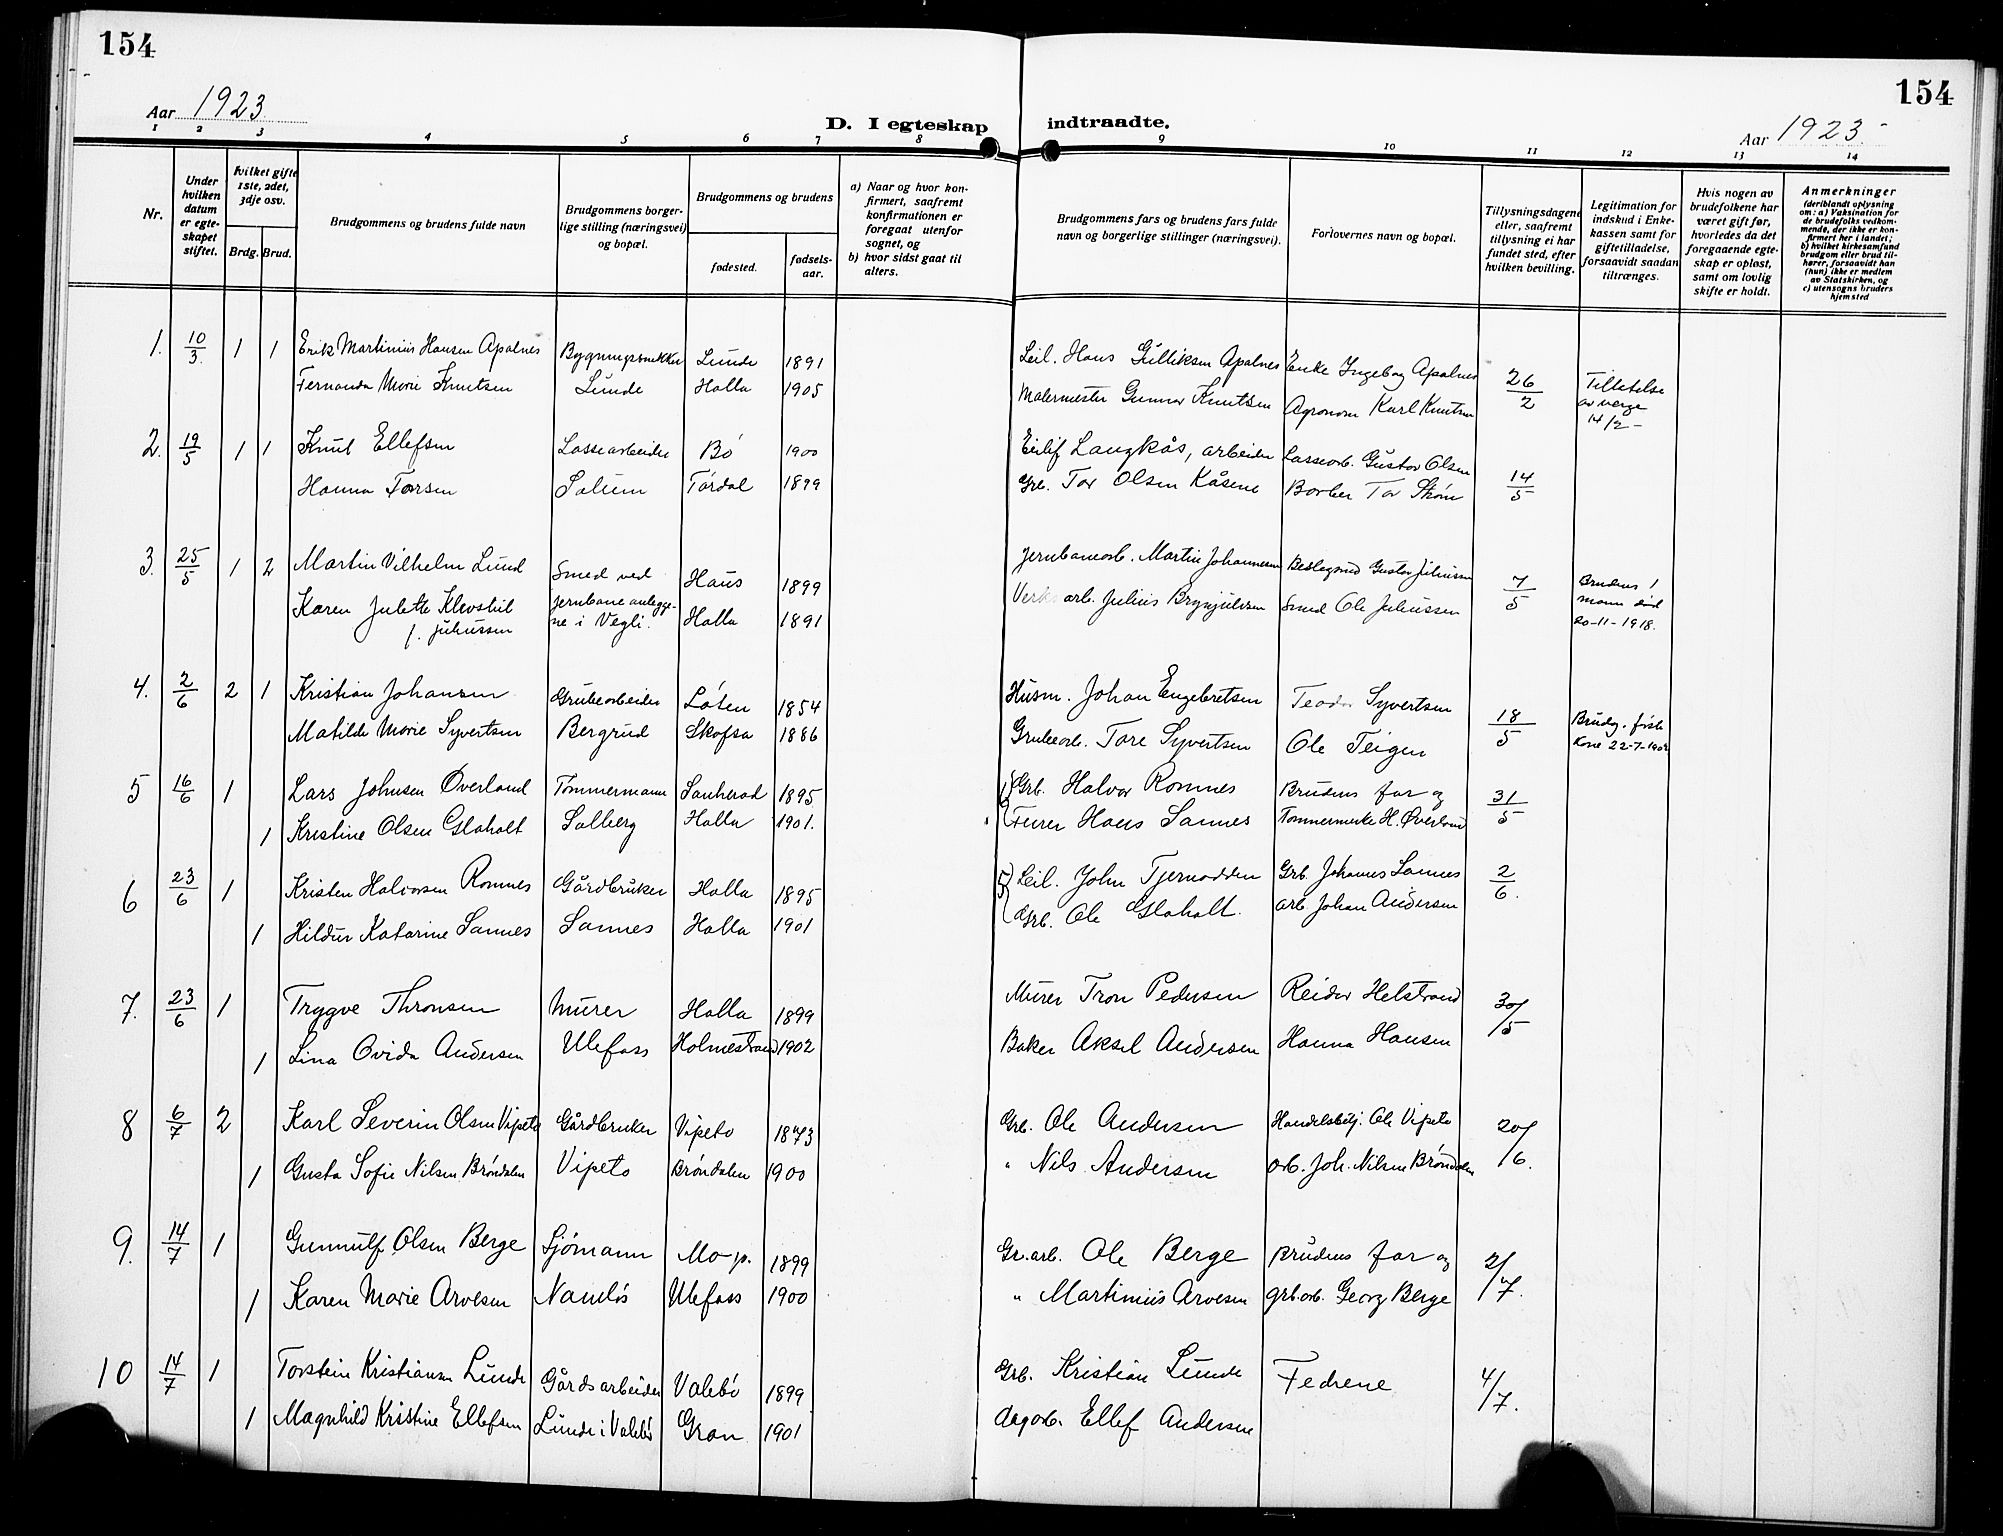 154
154
Aar 1923
D. I egteskap indtraadte.
Aar 1923
1 2 3 4 5 6 7 8 9 10 11 12 13 14
Nr.
Under hvilken datum er egteskapet stiftet.
Hvilket gifte 1ste, 2det, 3dje osv.
Brdg. Brud.
Brudgommens og brudens fulde navn
Brudgommens borgerlige stilling (næringsvei) og bopæl.
Brudgommens og brudens
fødested.
fødselsaar.
a) Naar og hvor konfirmert, saafremt konfirmationen er foregaat utenfor sognet, og
b) hvor sidst gaat til alters.
Brudgommens fars og brudens fars fulde navn og borgerlige stillinger (næringsvei).
Forlovernes navn og bopæl.
Tillysningsdagene eller, saafremt tillysning ei har fundet sted, efter hvilken bevilling.
Legitimation for indskud i Enkekassen samt for giftetilladelse, forsaavidt saadan tiltrænges.
Hvis nogen av brudefolkene har været gift før, hvorledes da det foregaaende egteskap er opløst, samt om lovlig skifte er holdt.
Anmerkninger (deriblandt oplysning om: a) Vaksination for de brudefolks vedkommende, der ikke er konfirmert her i landet; b) hvilket kirkesamfund brudgom eller brud tilhører, forsaavidt han (hun) ikke er medlem av Statskirken, og c) utensogns bruders hjemsted
1. 10/3. 1 1 Erik Martinius Hansen Apalnes Bygningssnekker Lunde 1891 Leil. Hans Gulliksen Apalnes Enke Ingeborg Apalnes 26/2 Tilladelse
Fernanda Marie Knutsen Lunde Holla 1905 Malermester Gunnar Knutsen Agronom Karl Knutsen av verge
14/2 -
2. 19/5 1 1 Knut Ellefsen Lossearbeider Bö 1900 Eilif Langkås, arbeider Lossearb. Gustav Olsen 14/5
Hanna Torsen Solum Tördal 1899 Grb. Tor Olsen Kåsene Barber Tor Ström
3. 25/5 1 2 Martin Vilhelm Lund Smed ved Haus 1899 Jernbanearb. Martin Johannesen Gustav Juliussen 7/5 Brudens 1
Karen Julette Klovstil jernbaneanlegge- Holla 1891 Verksarb. Julius Brynjulsen Smed Ole Juliussen mann död
f. Juliussen ne i Vegli. 20-11-1918.
4. 2/6 2 1 Kristian Johansen Grubearbeider Löten 1854 Husm. Johan Engebretsen Teodor Syvertsen 18/5 Brudg. förste
Matilde Marie Syvertsen Bergrud Skofsa 1886 Grubearb. Tore Syvertsen Ole Teigen Kone 22-7-1902
5 16/6 1 Lars Johnsen Överland Tömmermann Sauherad 1895 Grb. Halvor Romnes Brudens far og 31/5
1 Kristine Olsen Glaholt Solberg Holla 1901. Furer Hans Sannes Tömmermerker H. Överland
6 23/6 1 Kristen Halvorsen Romnes Gårdbruker Holla 1895 5 Leil. John Tjernodden Grb. Johannes Sannes 2/6.
1 Hildur Katarine Sannes Sannes Holla 1901 Grb. Ole Glaholt. arb. Johan Andersen
7. 23/6 1 Trygve Thronsen Murer Holla 1899 Murer Tron Pedersen Reidar Helstrand 30/5
1 Lina Ovida Andersen Ulefoss Holmestrand 1902 Baker Aksel Andersen Hanna Hansen
8 6/7 2 Karl Severin Olsen Vipeto Gårdbruker Vipeto 1873 Grb. Ole Andersen Handelsbetj. Ole Vipeto 20/6.
1 Gusta Sofie Nilsen Bröndalen Vipeto Bröndalen 1900 " Nils Andersen arb. Joh. Nilsen Bröndalen
9. 14/7 1 Gunnulf Olsen Berge Sjömann Mo p. 1899 Gr.arb. Ole Berge Brudens far og 2/7.
1 Karen Marie Arvesen Namlös Ulefoss 1900 " Martinius Arvesen grb.arb. Georg Berge
10 14/7 1 Torstein Kristiansen Lunde Gårdsarbeider Valebö 1899 Grb. Kristian Lunde Fedrene 4/7.
1 Magnhild Kristine Ellefsen Lunde i Valebö Gran 1901 dagarb. Ellef Andersen